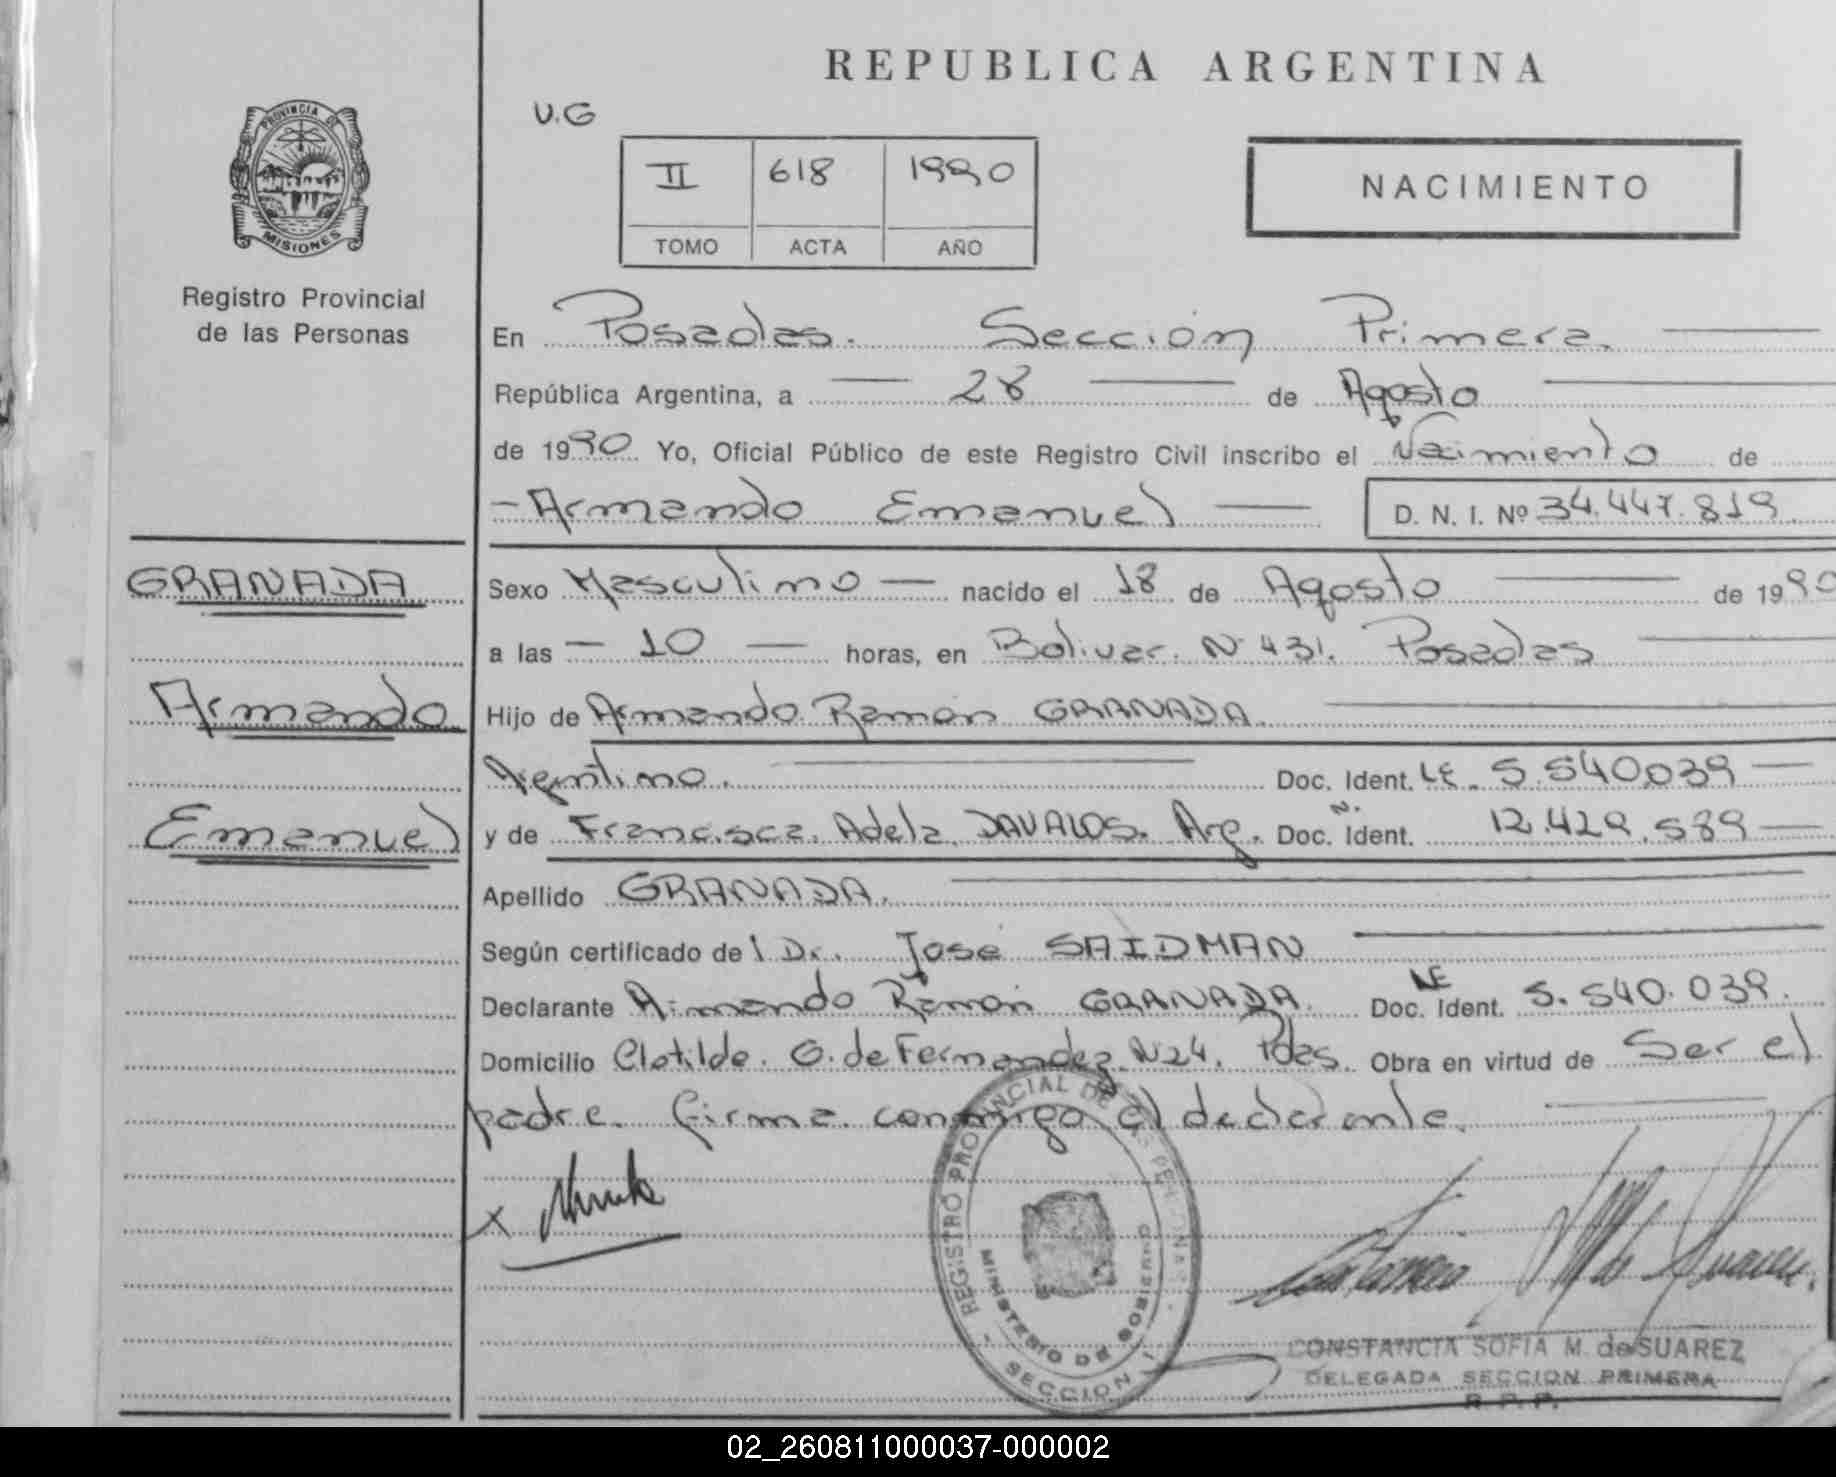 REPUBLICA ARGENTINA
PROVINCIA DE
MISIONES
Registro Provincial
de las Personas
V.G
II 618 1990
TOMO ACTA AÑO
NACIMIENTO
En Posadas. Sección Primera.
República Argentina, a 28 de Agosto
de 1990 Yo, Oficial Público de este Registro Civil inscribo el Nacimiento de
Armando Emanuel D. N. I. Nº 34.447.819
GRANADA
Armando
Emanuel
Sexo Masculino nacido el 18 de Agosto de 1990
a las 10 horas, en Bolivar. Nº 431. Posadas
Hijo de Armando Ramón GRANADA.
Argentino. Doc. Ident. LE. 5.540.039
y de Francisca. Adela. DAVALOS. Arg. Doc. N. Ident. 12.429.589
Apellido GRANADA.
Según certificado del Dr. José SAIDMAN
Declarante Armando Ramón GRANADA. Doc. LE Ident. 5.540.039.
Domicilio Clotilde. G. de Fernandez. N24. Pdas. Obra en virtud de Ser el
padre. Firma conmigo el declarante.
X
REGISTRO PROVINCIAL DE LAS PERSONAS
MINISTERIO DE GOBIERNO
SECCION 1
CONSTANCIA SOFIA M. de SUAREZ
DELEGADA SECCION PRIMERA
R.P.P.
02_260811000037-000002